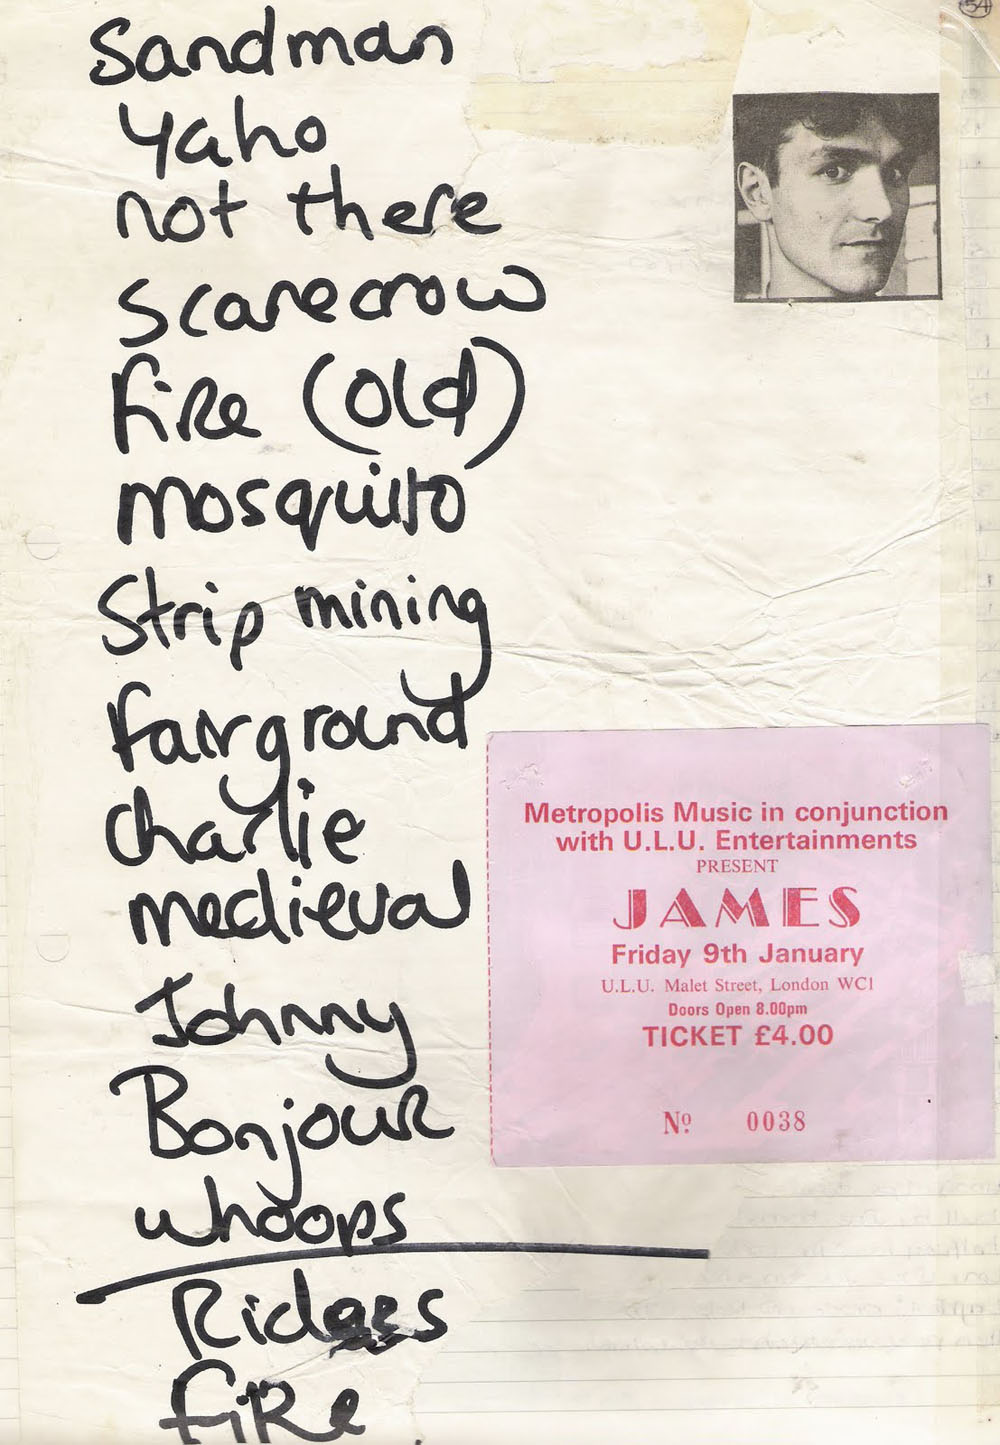 54
Sandman
Yaho
not there
Scarecrow
fire (old)
mosquito
Strip mining
fairground
Charlie
medieval
Johnny
Bonjour
whoops
Ridges
fire
Metropolis Music in conjunction
with U.L.U. Entertainments
PRESENT
JAMES
Friday 9th January
U.L.U. Malet Street, London WC1
Doors Open 8.00pm
TICKET £4.00
Nº 0038